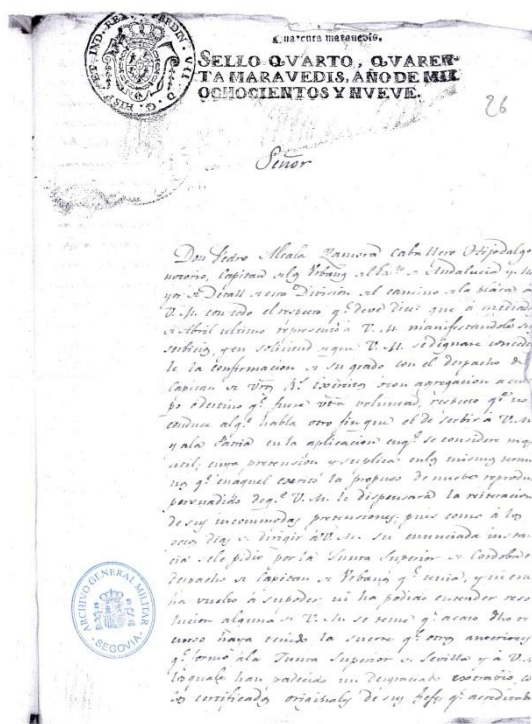 HISP. ET IND. REX. FERDIN. VII. D. G.
Quarenta maravedis.
SELLO QVARTO, QVAREN-
TA MARAVEDIS, AÑO DE MIL
OCHOCIENTOS Y NVEVE.
26
Señor
Don Pedro Alcala Zamora Caballero Hijodalgo
notorio, Capitan de Urbanos de Andalucia y
de Detall division del camino a la plaza
V. M. con todo el respeto q.e deve dice: que à mediad
de Abril ultimo representó a V. M. manifestandole
servicios, y en solicitud que V. M. se dignase conced
le la confirmacion de su grado con el despacho de
Capitan de Exercitos con agregacion a cu
po o destino q.e fuese voluntad, respecto q.e
conduce otro fin que el de serbir à V. M
y ala Patria en la aplicacion en q.e se considere
util; cuya pretension y suplica en los mismos termi
nos q.e en aquel exerció la propuso de nuebo reprodu
persuadido de q.e V. M. le dispensará la reiteracion
de sus incommodas pretensiones; pues como à los
dias de dirigir à V. M. su enunciada instan
cia se le pidió por la Junta Superior de Cordoba
despacho de Capitan de Urbanos q.e tenia, y
ha vuelto à su poder ni ha podido entender reso
lucion alguna de V. M. se teme q.e acaso dho re
curso haya tenido la suerte q.e otros anteriores
q.e formó ala Junta Superior de Sevilla y à V. M
los quales han padecido un desgraciado extravio, co
certificados originales de sus Gefes q.e acreditaba
ARCHIVO GENERAL MILITAR
SEGOVIA